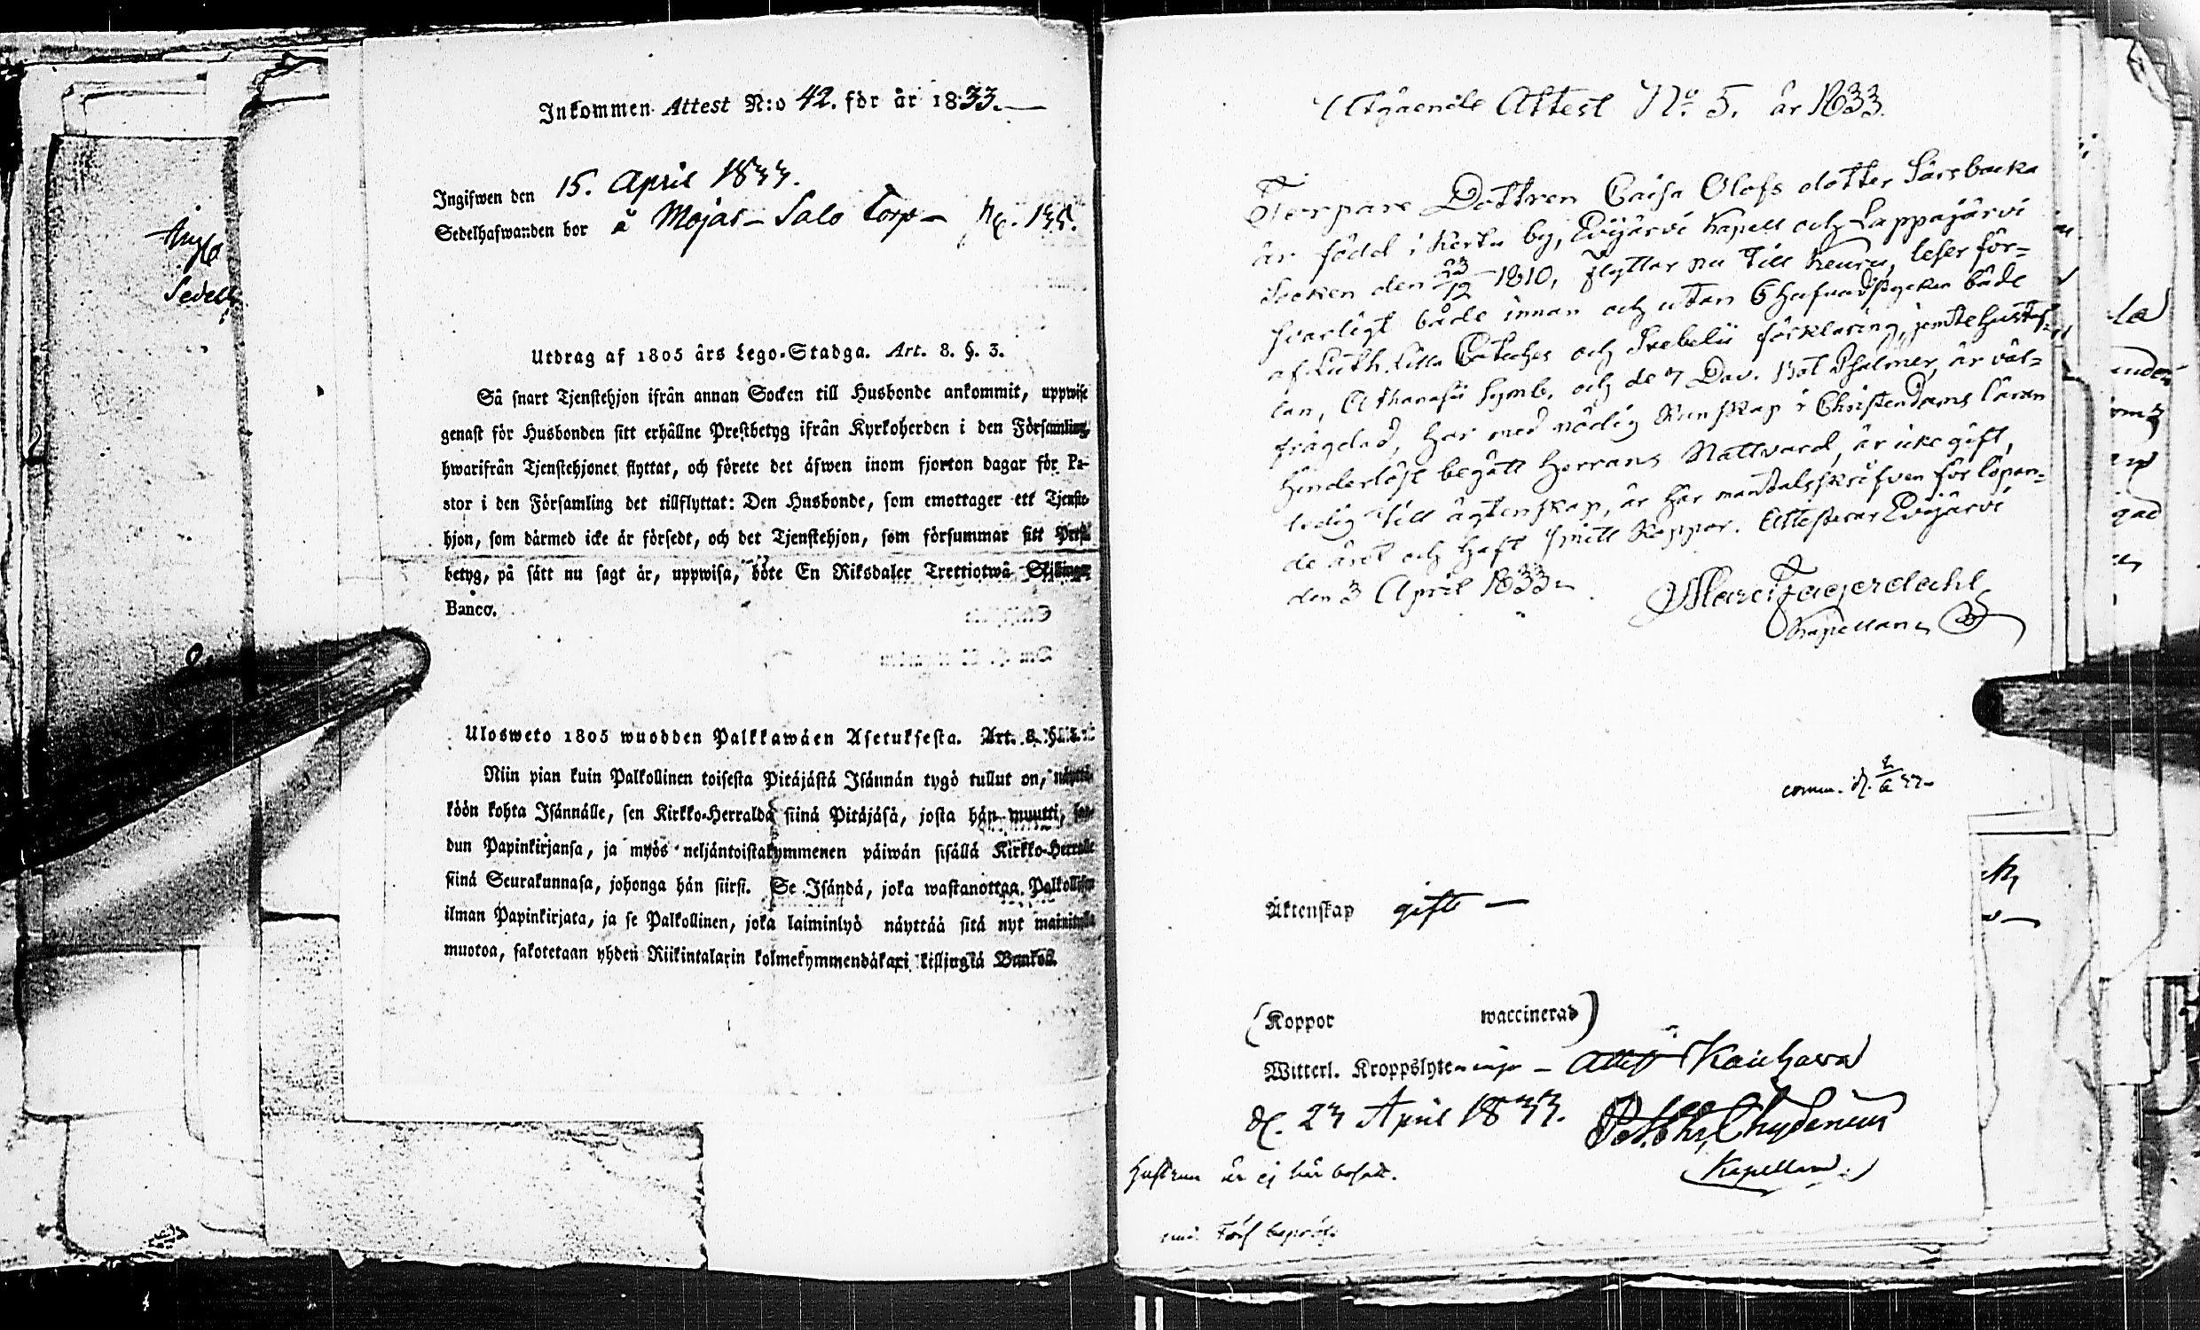 Flyg
Sedell
Inkommen Attest N:o 42. för år 1833.
Ingifwen den 15. April 1833.
Sedelhafwanden bor å Mojas-Salo Torp - pag. 135.
Utdrag af 1805 års Lego-Stadga. Art. 8. §. 3.
Så snart Tjenstehjon ifrån annan Socken till Husbonde ankommit, uppwise
genast för Husbonden sitt erhållne Prestbetyg ifrån Kyrkoherden i den Församling,
hwarifrån Tjenstehjonet flyttat, och förete det äfwen inom fjorton dagar för Pa-
stor i den Församling det tillflyttat: Den Husbonde, som emottager ett Tjenste-
hjon, som därmed icke är försedt, och det Tjenstehjon, som försummar sitt Prest-
betyg, på sätt nu sagt är, uppwisa, böte En Riksdaler Trettiotwå Skillingar
Banco.
Ulosweto 1805 wuodden Palkkawäen Asetuksesta. Art. 8. §. 3.
Niin pian kuin Palkollinen toisesta Pitäjästä Isännän tygö tullut on, näyttä-
köön kohta Isännälle, sen Kirkko-Herralda siinä Pitäjäsä, josta hän muutti, saa-
dun Papinkirjansa, ja myös neljäntoistakymmenen päiwän sisällä Kirkko-Herralle
siinä Seurakunnasa, johonga hän siirsi. Se Isändä, joka wastanottaa Palkollisen
ilman Papinkirjata, ja se Palkollinen, joka laiminlyö näyttää sitä nyt mainitulla
muotoa, sakotetaan yhden Riikintalarin kolmekymmendäkaxi killingiä Bankos.
Utgående Attest No. 5. år 1833.
Torpare Dottren Caisa Olofs dotter Särsbacka
är född i Kerttu by, Evijärvi Kapell och Lappajärvi
Socken den 23/12 1810, flyttar nu till Keuru, läser för-
svarligt både innan och utan 6 hufvudstycken både
af Luth. Lilla Cateches och Svebelii förklaring, jemte Hustaf-
lan, Athanasii Symb. och de 7 Dav. Bot Psalmer, är väl-
frägdad, har med nödig Kunskap i Christendoms läran
hinderlöst begått Herrans Nattvard, är icke gift,
ledig till ägtenskap, är här mantalsskrifven för löpan-
de året och haft Koppor. Attesterar Evijärvi
den 3 April 1833.
Fagerdahl
Kapellan
comm. d. 2/6 33
Äktenskap gift
(Koppor waccinerad)
Witterl. Kroppslyte inga - Attest Kauhava
d. 23 April 1833. Pet. Ehr. Chydenius
Kapellan.
Hustrun är ej här bosatt.